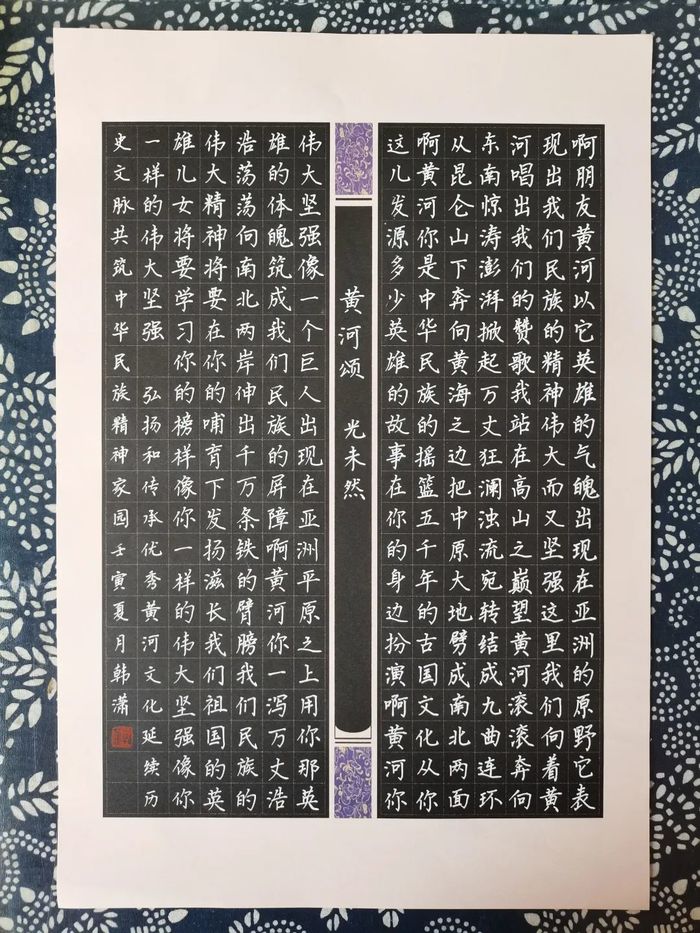 啊朋友黄河以它英雄的气魄出现在亚洲的原野它表
现出我们民族的精神伟大而又坚强这里我们向着黄
河唱出我们的赞歌我站在高山之巅望黄河滚滚奔向
东南惊涛澎湃掀起万丈狂澜浊流宛转结成九曲连环
从昆仑山下奔向黄海之边把中原大地劈成南北两面
啊黄河你是中华民族的摇篮五千年的古国文化从你
这儿发源多少英雄的故事在你的身边扮演啊黄河你
黄河颂 光未然
伟大坚强像一个巨人出现在亚洲平原之上用你那英
雄的体魄筑成我们民族的屏障啊黄河你一泻万丈浩
浩荡荡向南北两岸伸出千万条铁的臂膀我们民族的
伟大精神将要在你的哺育下发扬滋长我们祖国的英
雄儿女将要学习你的榜样像你一样的伟大坚强像你
一样的伟大坚强 弘扬和传承优秀黄河文化延续历
史文脉共筑中华民族精神家园壬寅夏月韩潇